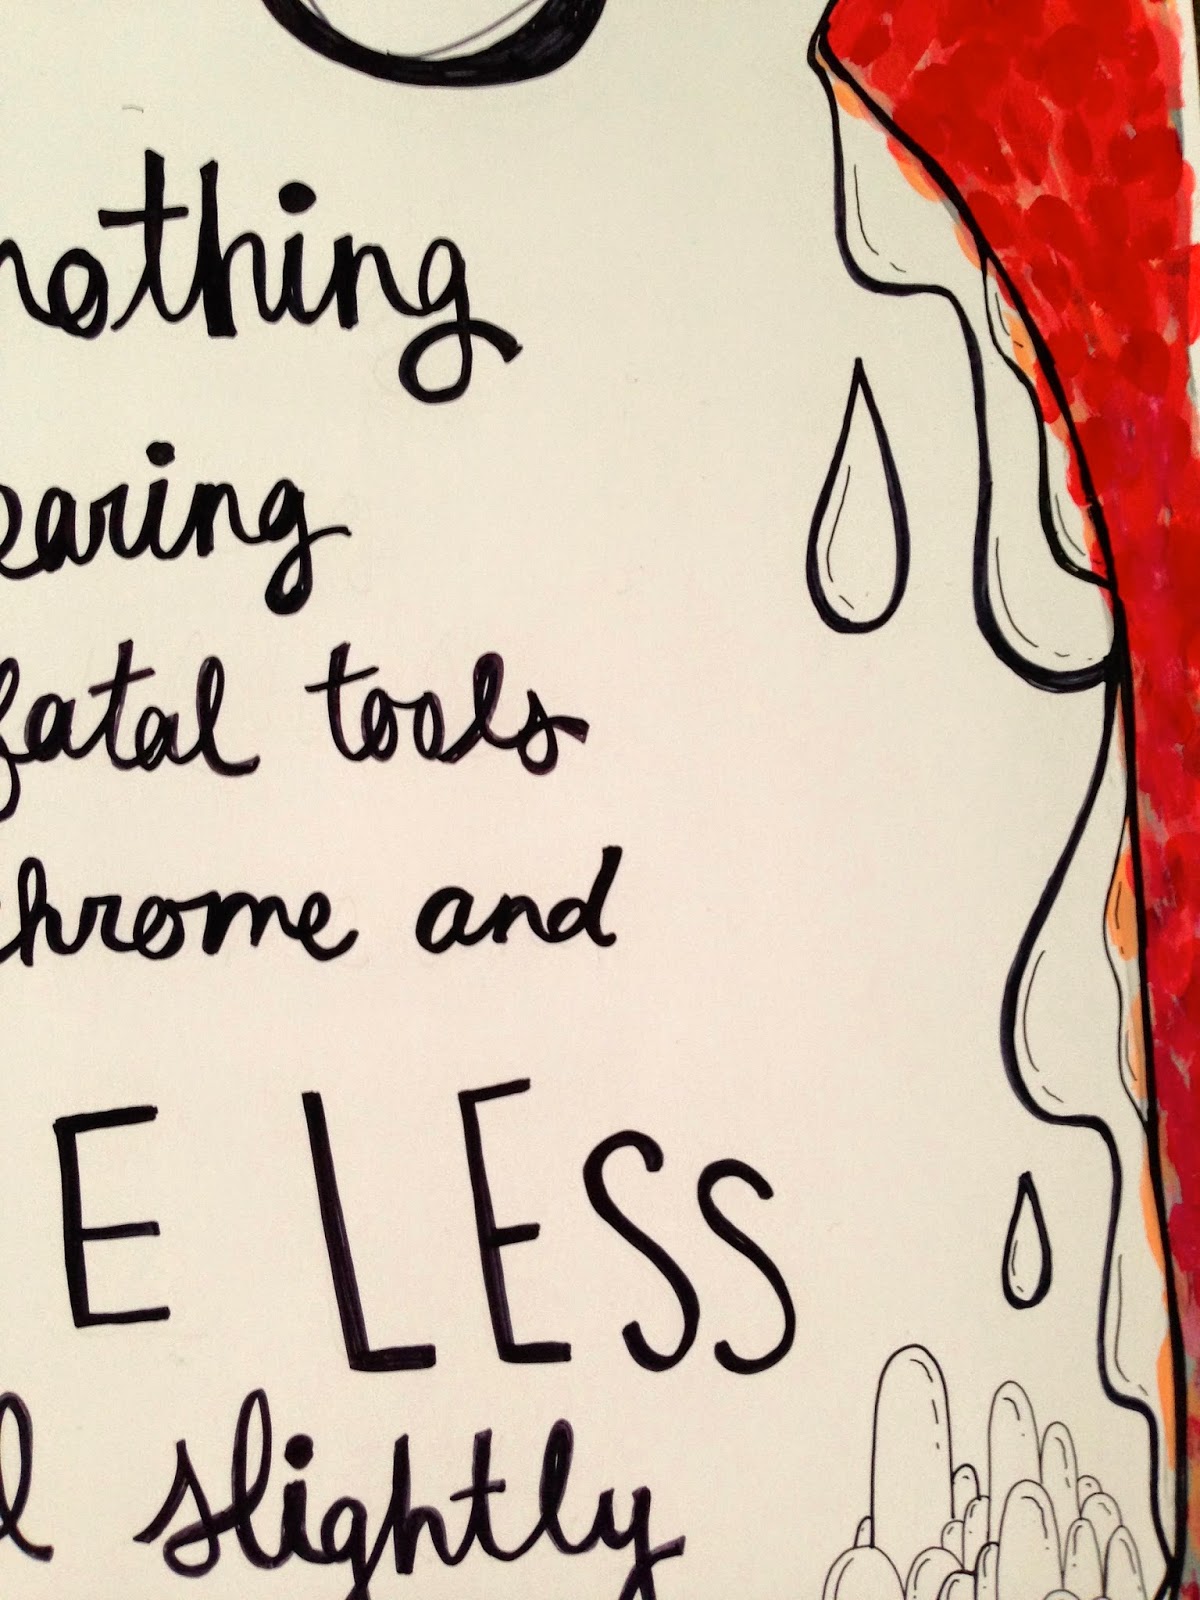 nothing
earing
fatal tools
chrome and
E LESS
l slightly